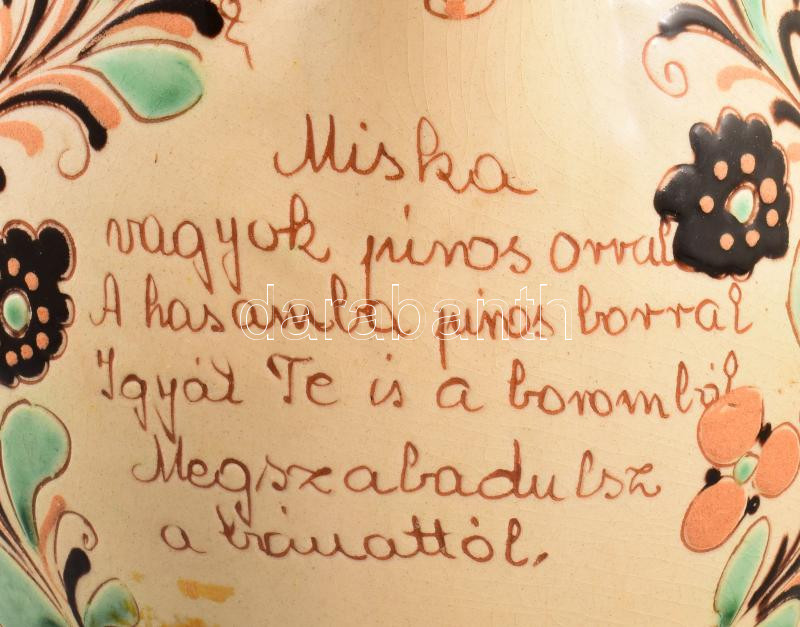 Miska
vagyok piros orral
A hasamba piros borral
Igyál Te is a boromból
Megszabadulsz
a bánattól.
darabanth